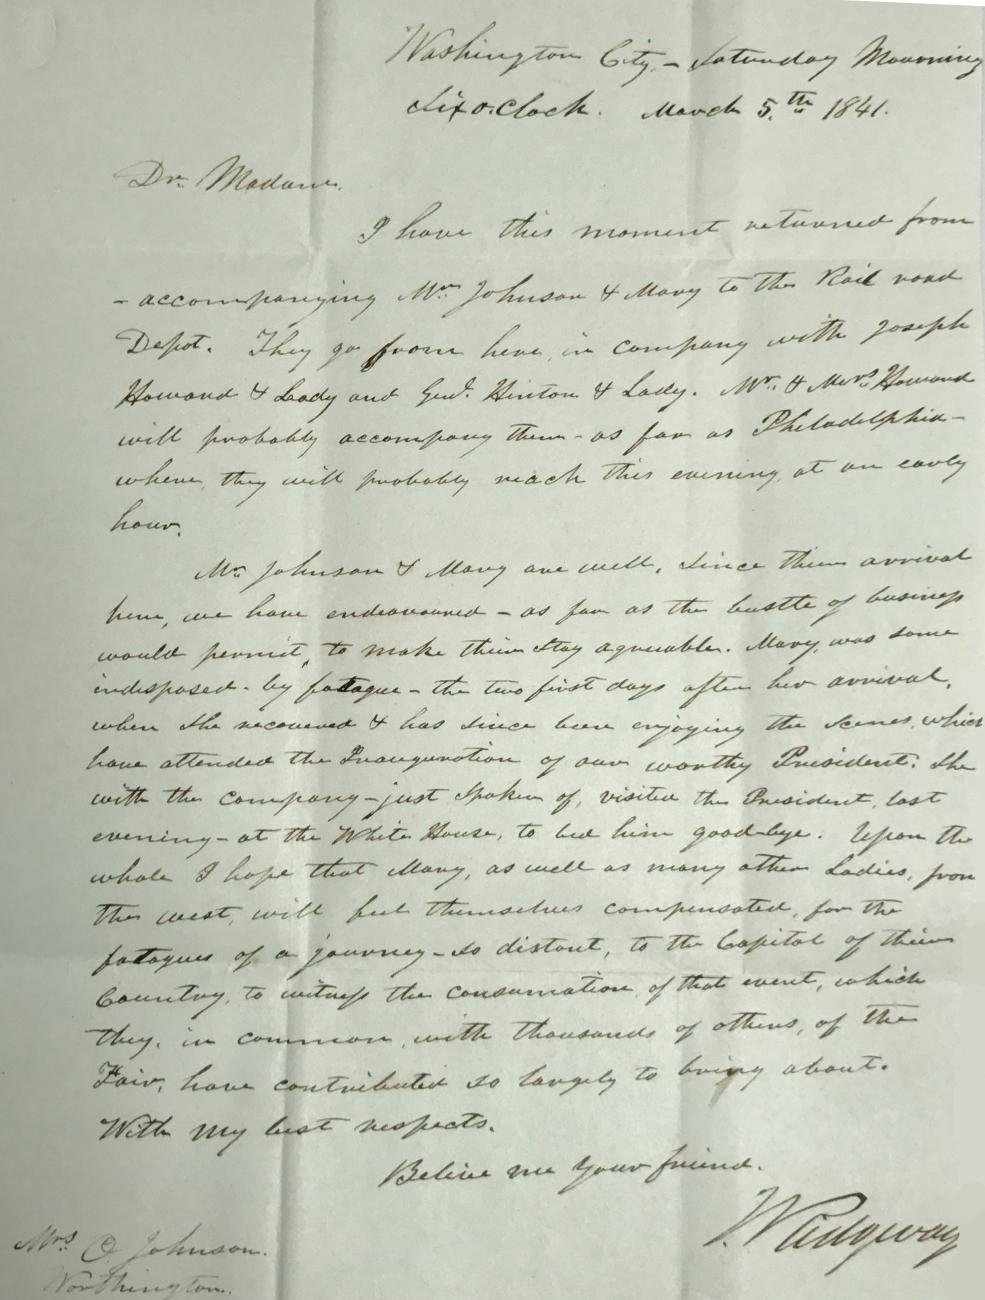 Washington City – Saturday Mourning
Six o.Clock. March 5.th 1841.
Dr. Madam.
I have this moment returned from
– accompanying Mr. Johnson & Mary to the Rail road
Depot. They go from here, in company with Joseph
Howard & Lady and Genl. Hinton & Lady. Mr. & Mrs. Howard
will probably accompany them – as far as Philadelphia –
where, they will probably reach this evening, at an early
hour.
Mr. Johnson & Mary are well, Since their arrival
here, we have endeavoured – as far as the bustle of business
would permit, to make their Stay agreeable. Mary, was some
indisposed – by fatague – the two first days after her arrival,
when She recovered & has Since been enjoying the Scenes, which
have attended the Inauguration of our worthy President. She
with the company – just Spoken of, visited the President, last
evening – at the White House, to bid him good-bye. Upon the
whole I hope that Mary, as well as many other Ladies, from
the west, will feel themselves compensated, for the
fatagues of a journey – so distant, to the Capitol of their
Country, to witness the consumation, of that event, which
they, in common, with thousands of others, of the
Fair, have contributed so largely to bring about.
With my best respects.
Belive me Your friend.
J. Ridgway
Mrs. O. Johnson.
Worthington.